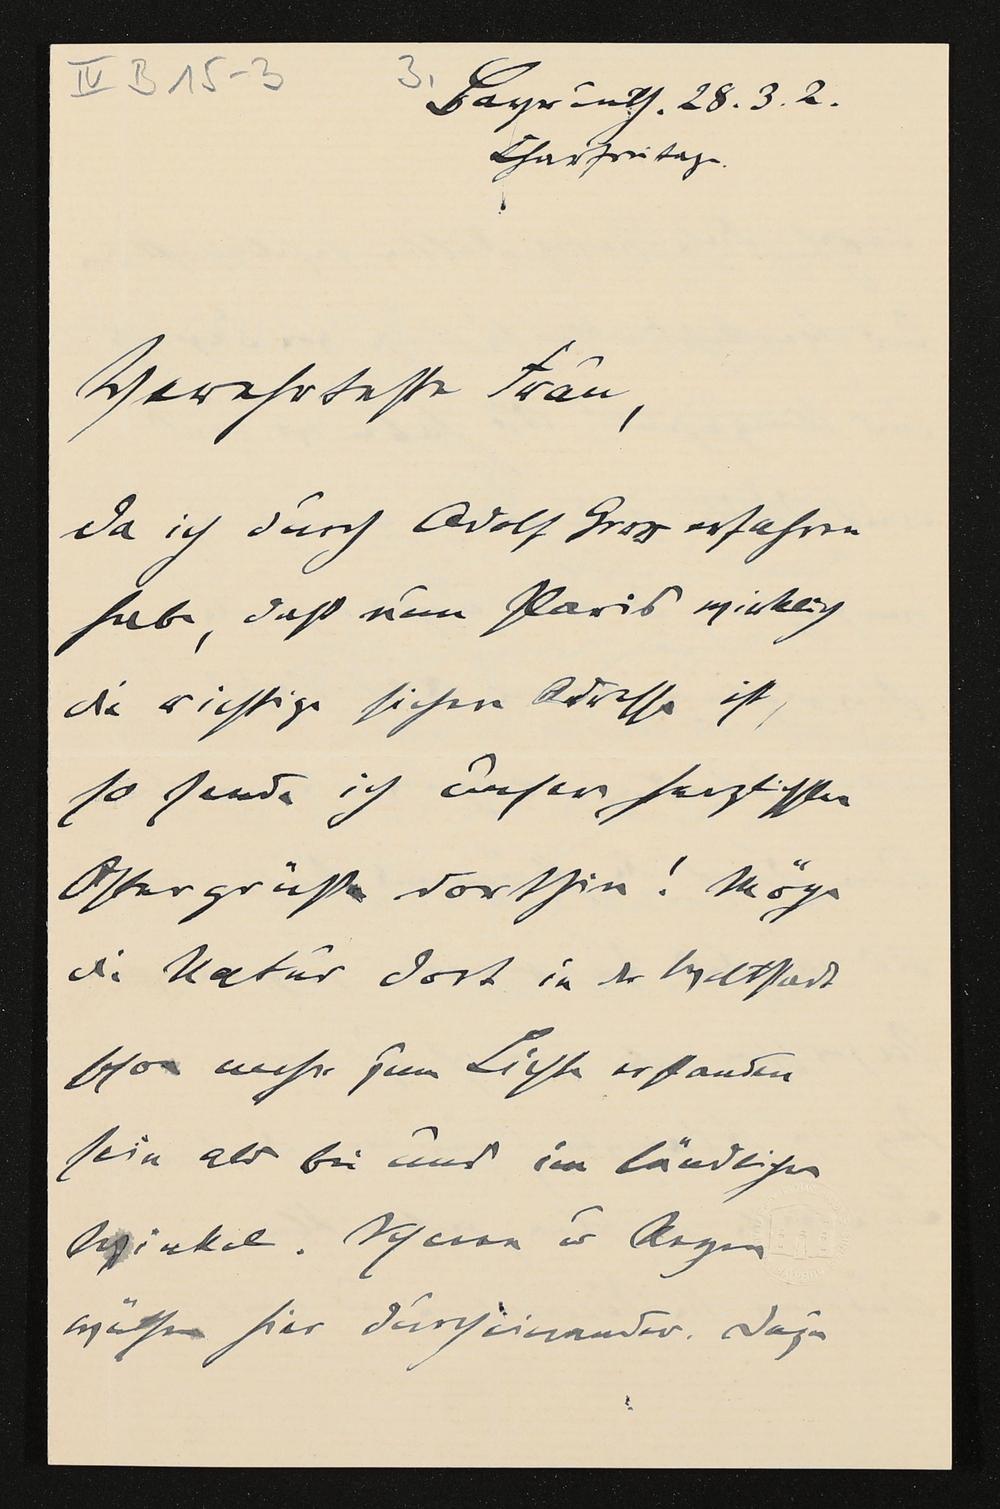 IV B 15-3
3.
Bayreuth. 28.3.2.
Charfreitage.
Verehrteste Frau,
da ich durch Adolf Gross erfahren
habe, daß nun Paris wirklich
die richtige sichere Adresse ist,
so sende ich unsere herzlichsten
Ostergrüße dorthin! Möge
die Natur dort in der Weltstadt
schon mehr zum Lichte erstanden
sein als bei uns im ländlichen
Winkel. Schnee u Regen
wüthen hier durcheinander. Dazu